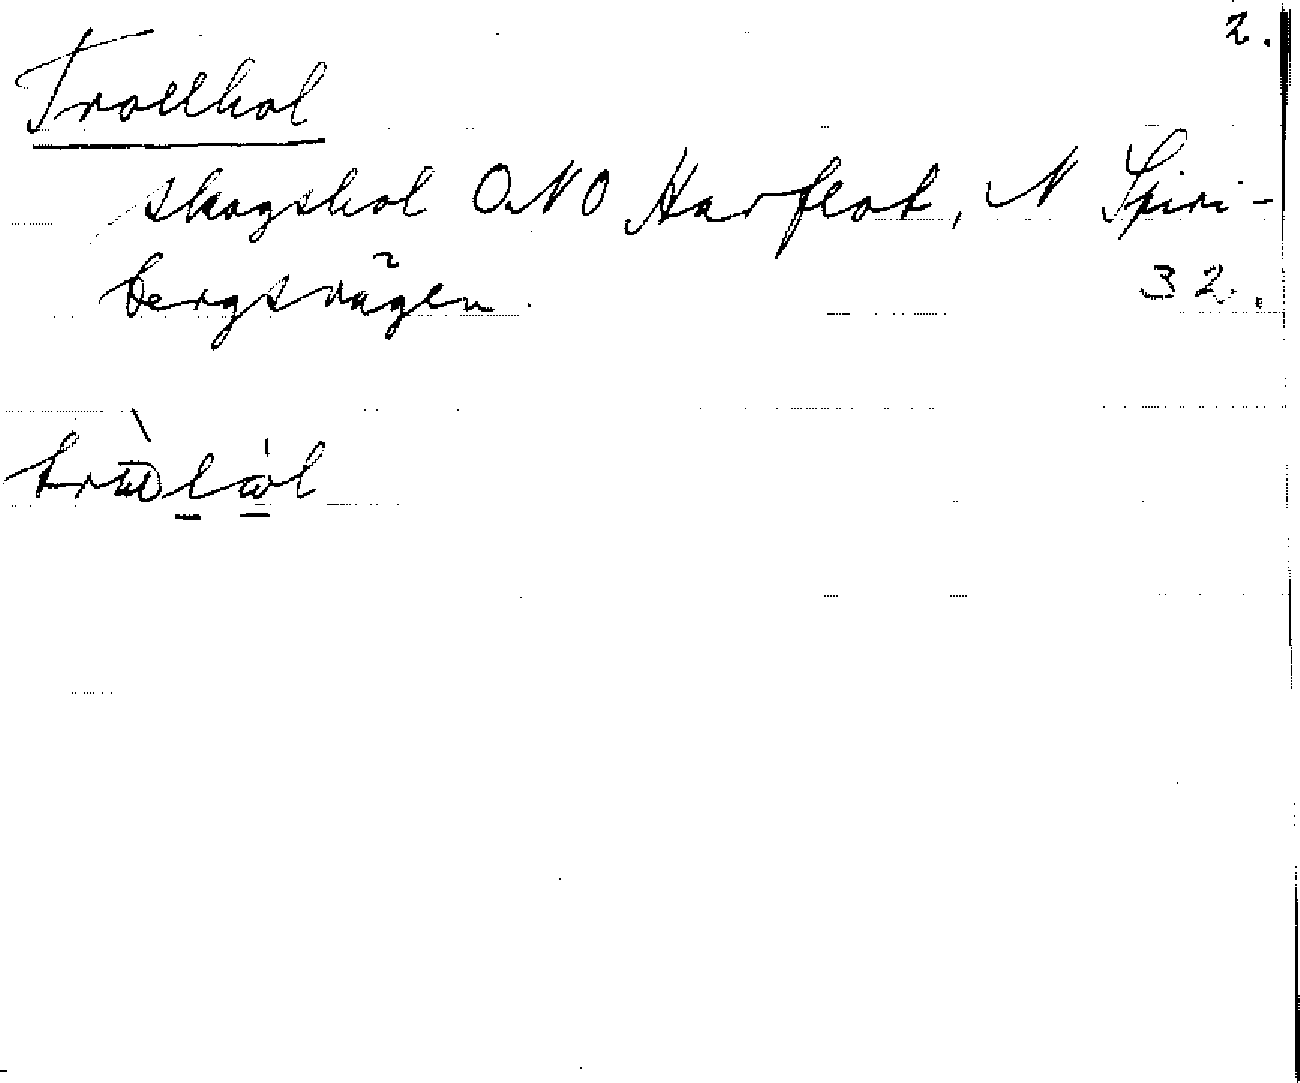 2.
Trollhol
skogshol ONO Harflot, N Spiri-
bergsvägen. 32.